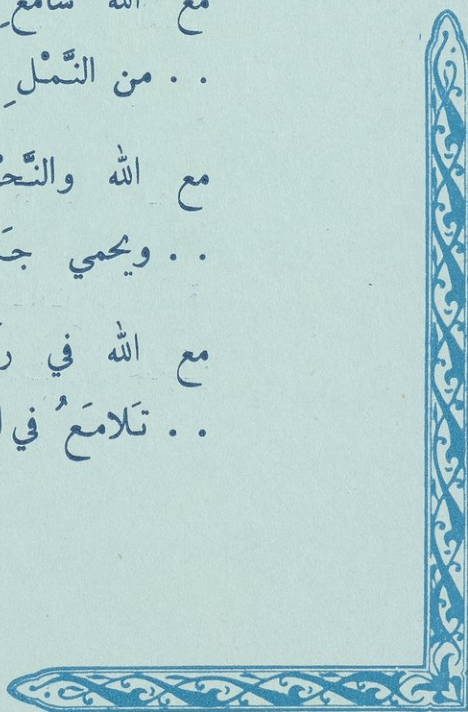 مع الله سامع
. . من النَّمْلِ
مع الله
. . ويحمي
مع الله في
. . تَلامَعُ في